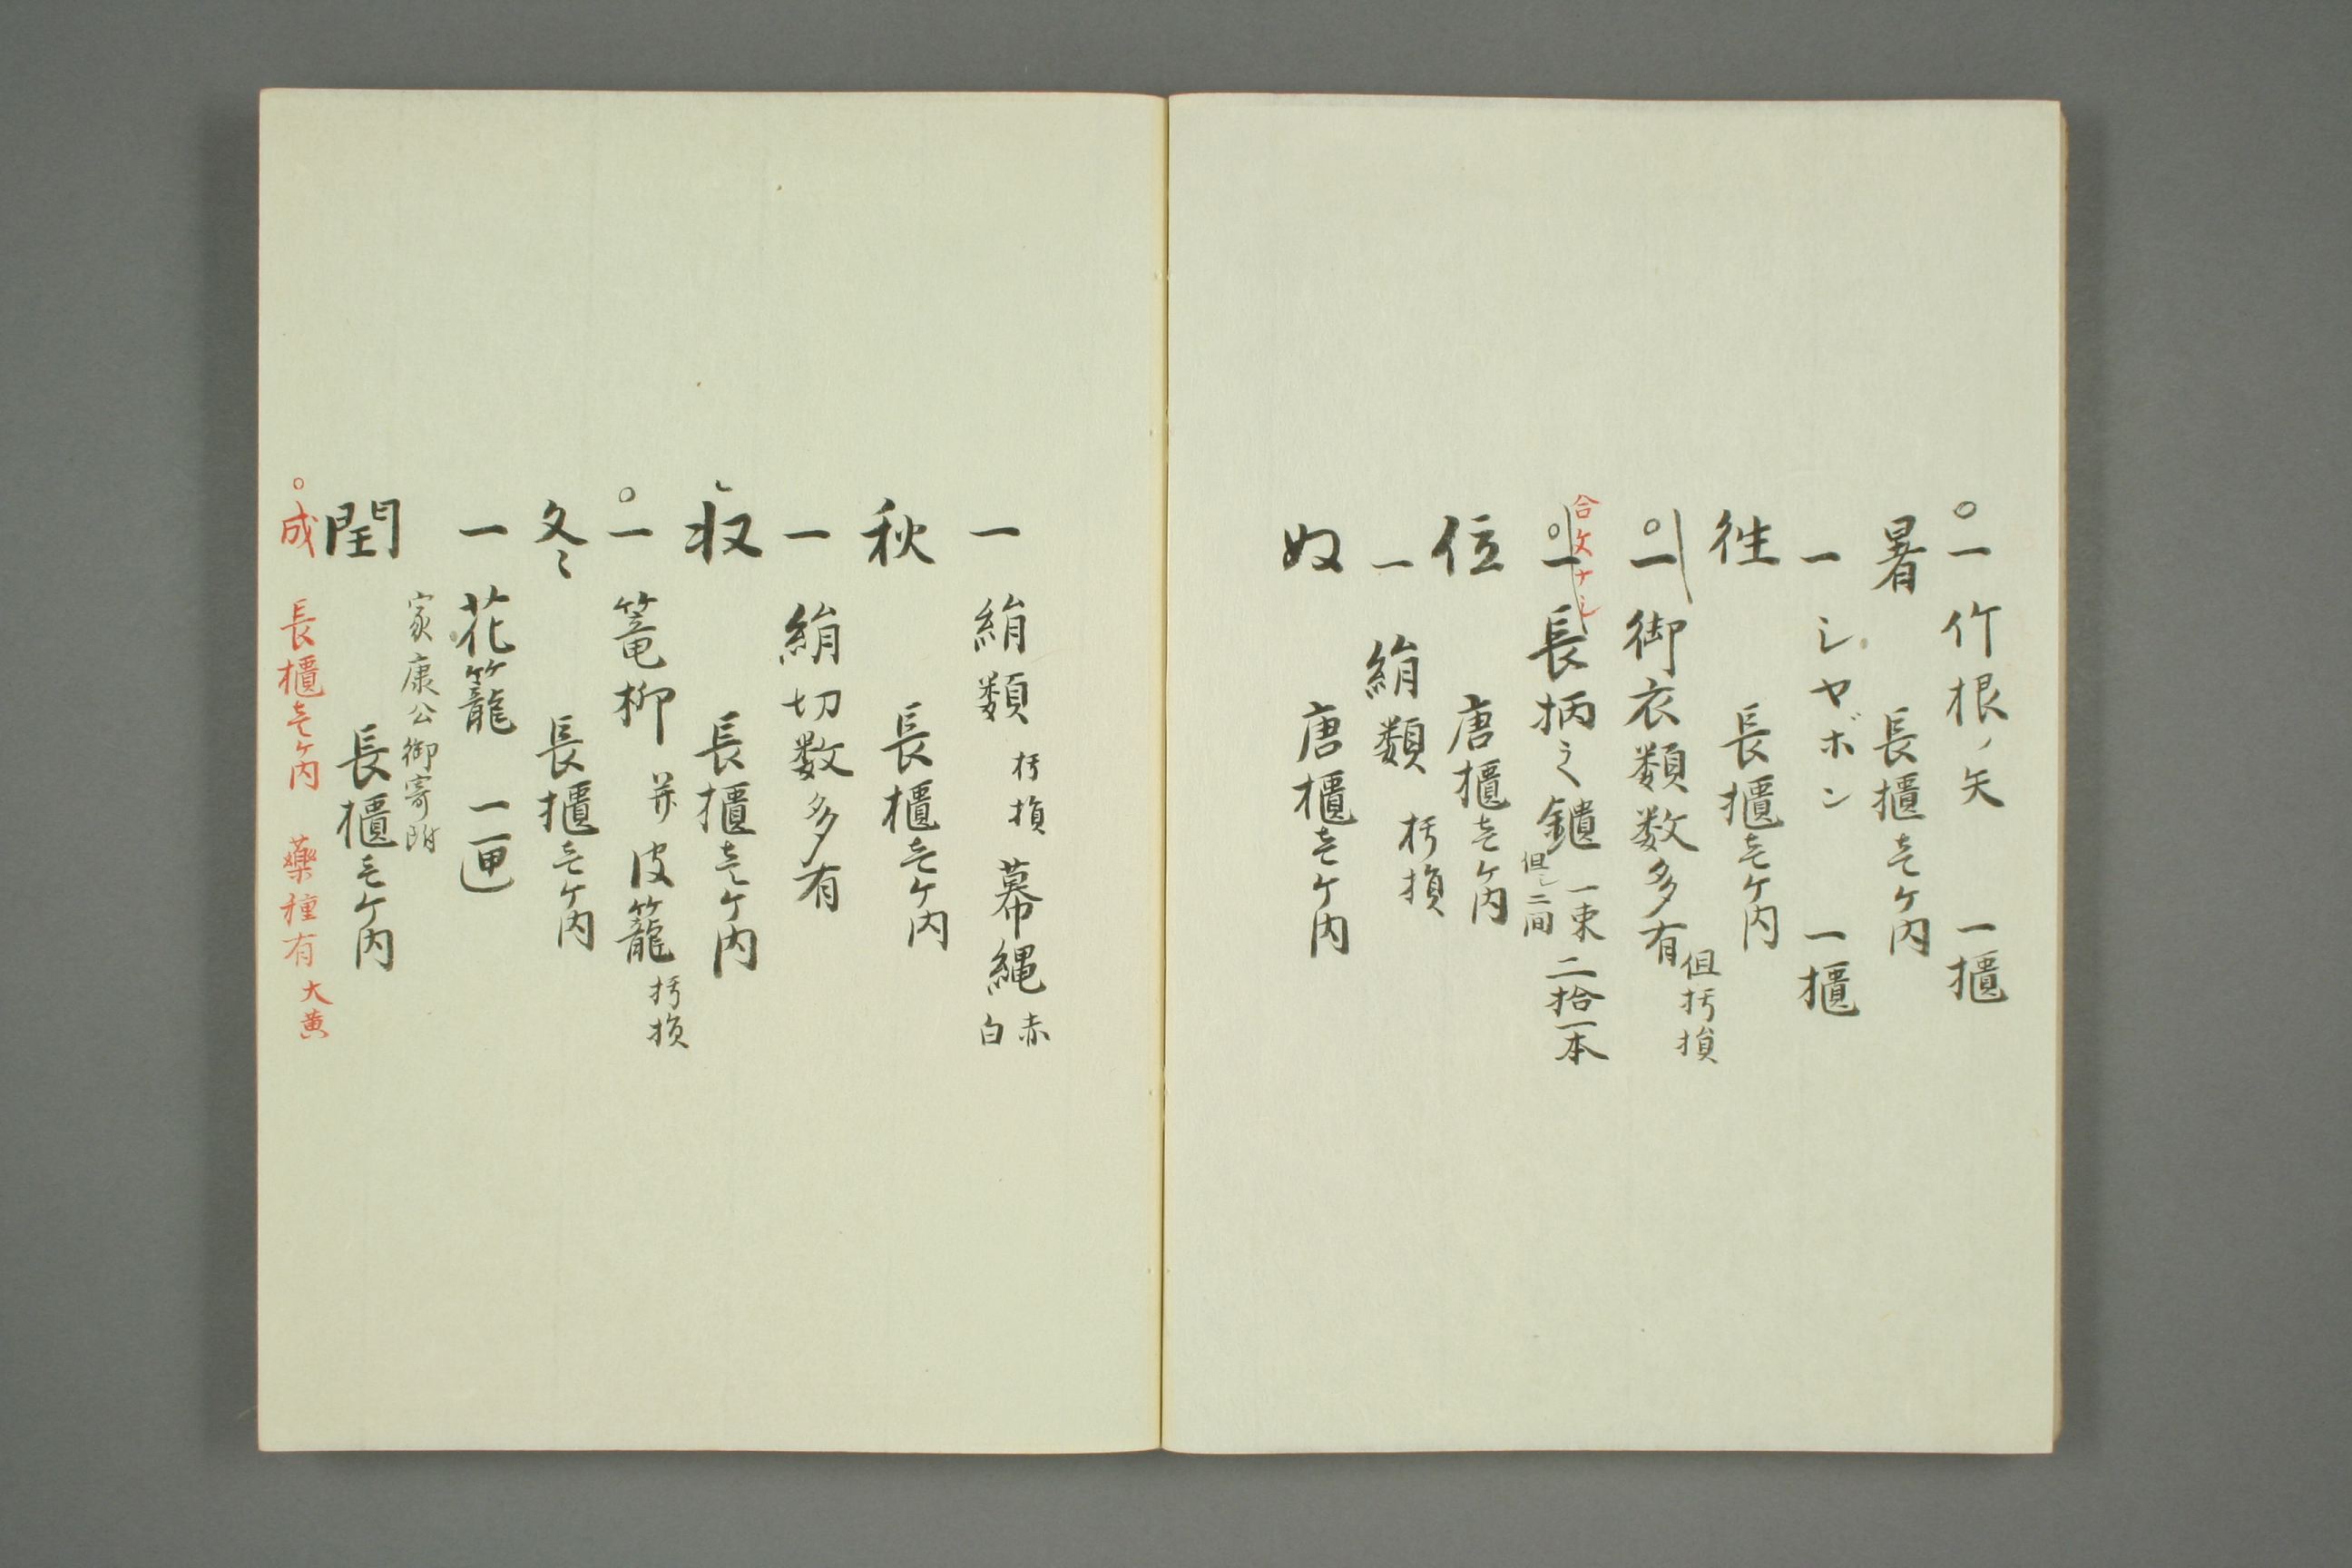 ○一 竹根ノ矢 一櫃
暑 長櫃壱ケ内
一 シヤボン 一櫃
往 長櫃壱ケ内
○一 御衣類数多有 但朽損
合文ナシ
○一 長柄之鑓 一束二拾一本 但シ二間
位 唐櫃壱ケ内
一 絹類 朽損
奴 唐櫃壱ケ内
一 絹類 朽損 幕縄 赤白
秋 長櫃壱ケ内
一 絹切数多有
収 長櫃壱ケ内
○一 篭柳 并皮籠 朽損
冬 長櫃壱ケ内
一 花籠 一匣
家康公御寄附
閏 長櫃壱ケ内
○成 長櫃壱ケ内 薬種有 大黄